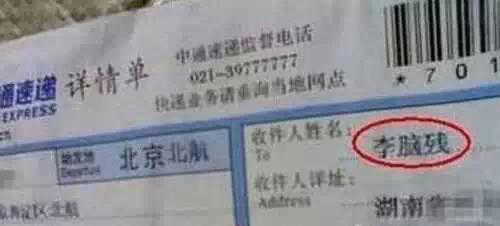 通速递 详情单
EXPRESS
中通速递监督电话
021-39777777
快递业务请查询当地网点
*701
始发地
Departure
北京北航
收件人姓名:
To
李脑残
收件人详址:
Address
湖南省
区北航